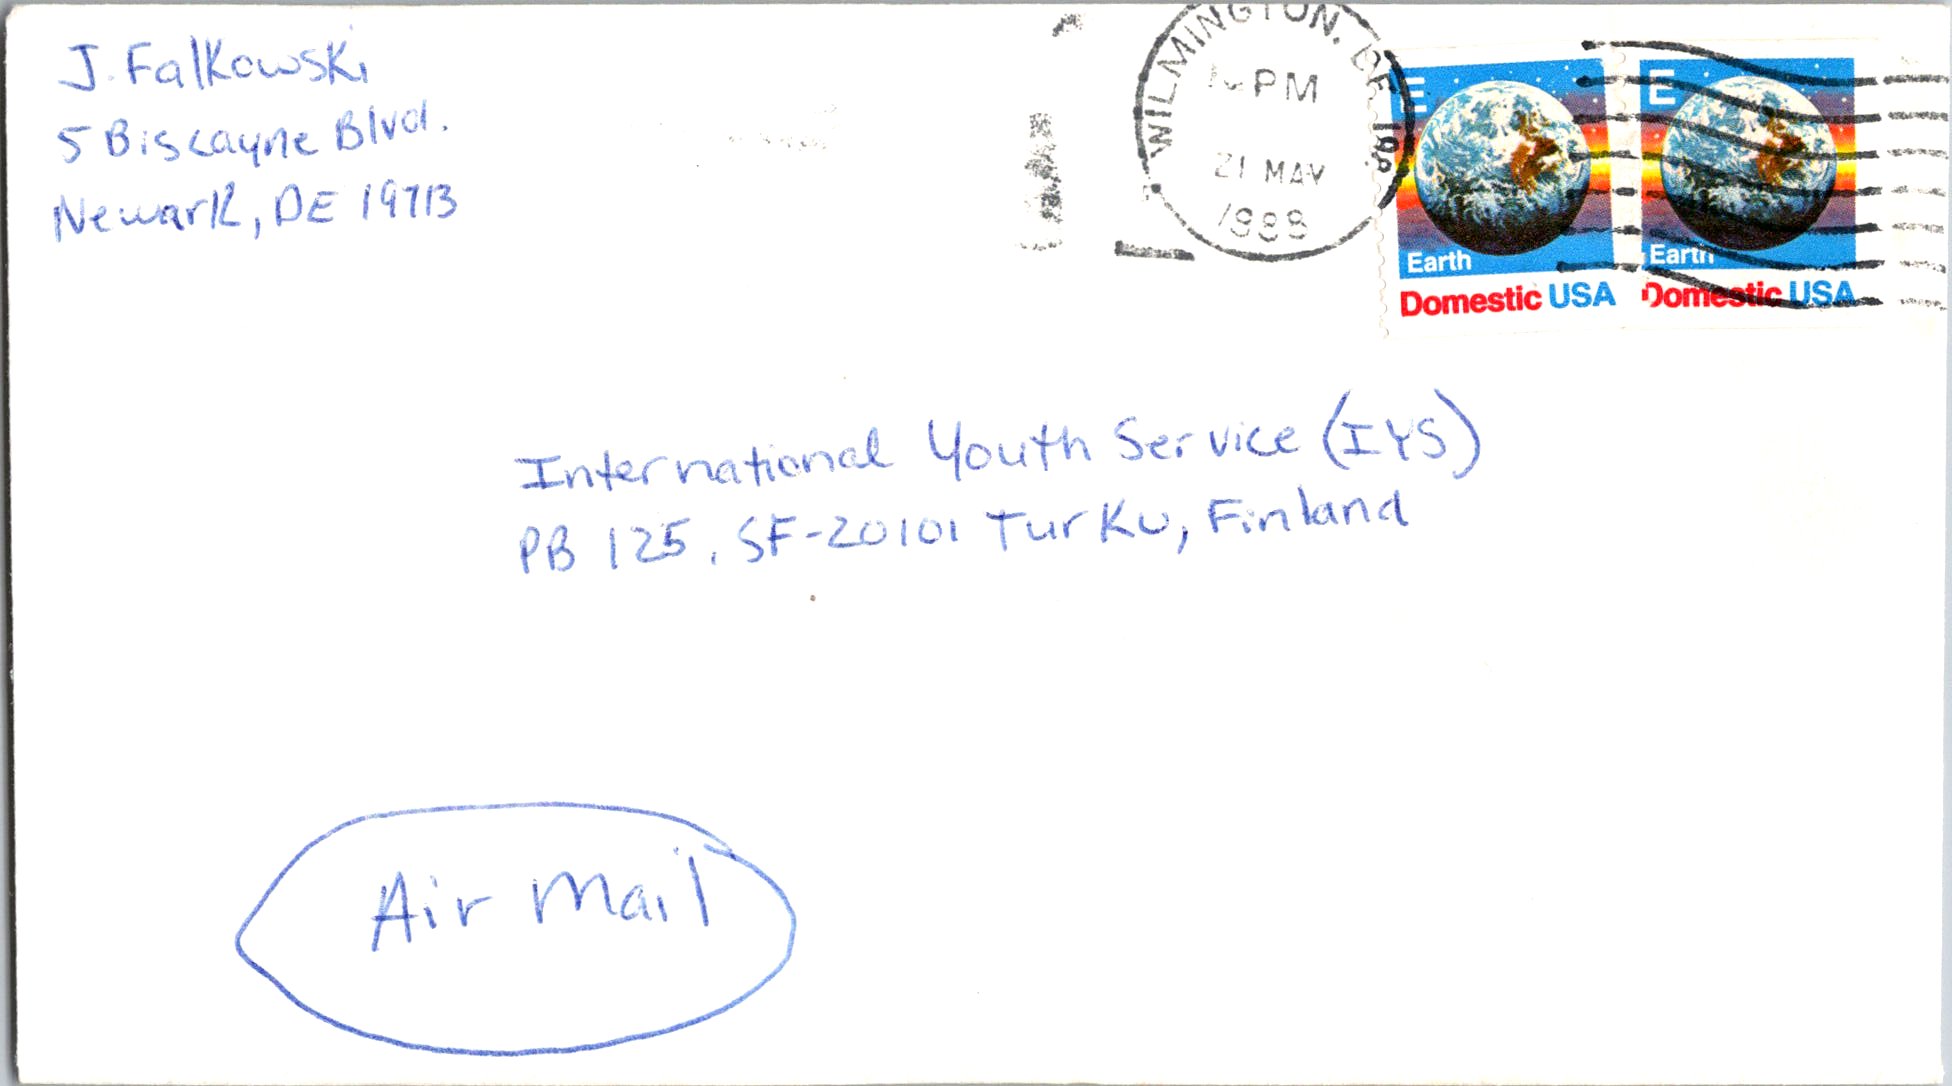 J. Falkowski
5 Biscayne Blvd.
Newark, DE 19713
WILMINGTON, DE 198
PM
21 MAY
1988
E
Earth
Domestic USA
E
Earth
Domestic USA
International Youth Service (IYS)
PB 125, SF-20101 Turku, Finland
Air Mail